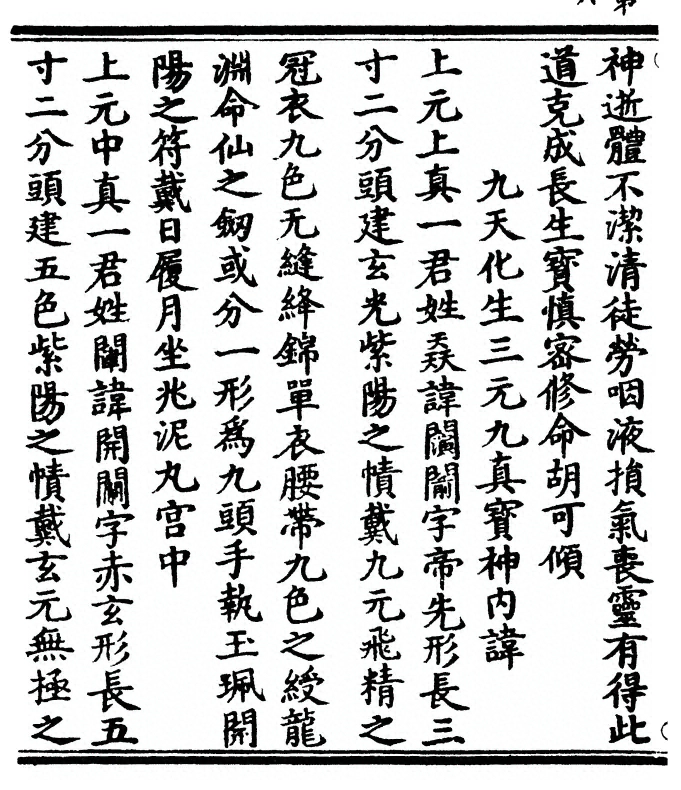 神逝體不潔清徒勞咽液損氣喪靈有得此
道克成長生寶慎密修命胡可傾
九天化生三元九真寶神內諱
上元上真一君姓諱字帝先形長三
寸二分頭建玄光紫陽之幘戴九元飛精之
冠衣九色无縫絳錦單衣腰帶九色之綬龍
淵命仙之劒或分一形爲九頭手執玉珮開
陽之符戴日履月坐兆泥丸宮中
上元中真一君姓諱開字赤玄形長五
寸二分頭建五色紫陽之幘戴玄元無極之